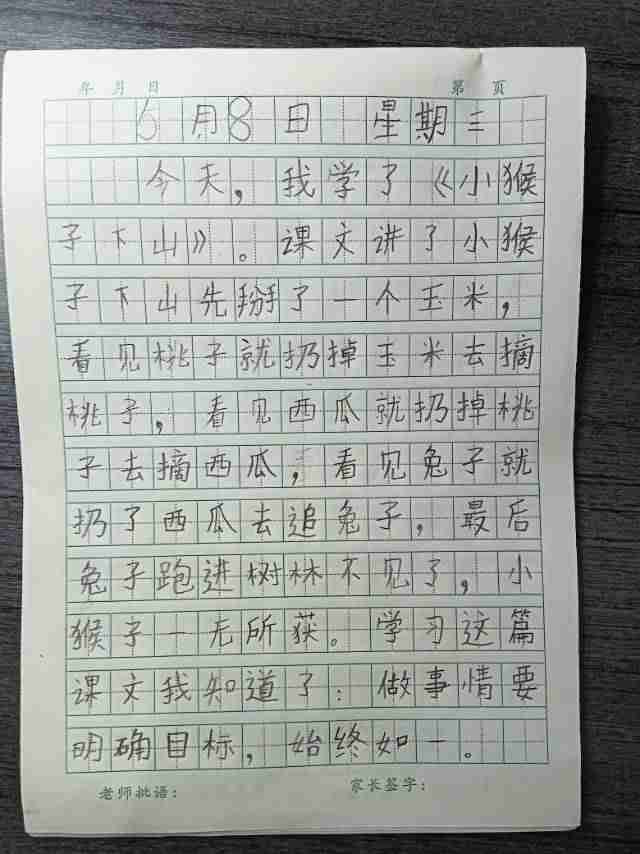 年 月 日 第 页
6月8日 星期三
今天，我学了《小猴
子下山》。课文讲了小猴
子下山先掰了一个玉米，
看见桃子就扔掉玉米去摘
桃子，看见西瓜就扔掉桃
子去摘西瓜，看见兔子就
扔了西瓜去追兔子，最后
兔子跑进树林不见了，小
猴子一无所获。学习这篇
课文我知道了：做事情要
明确目标，始终如一。
老师批语： 家长签字：